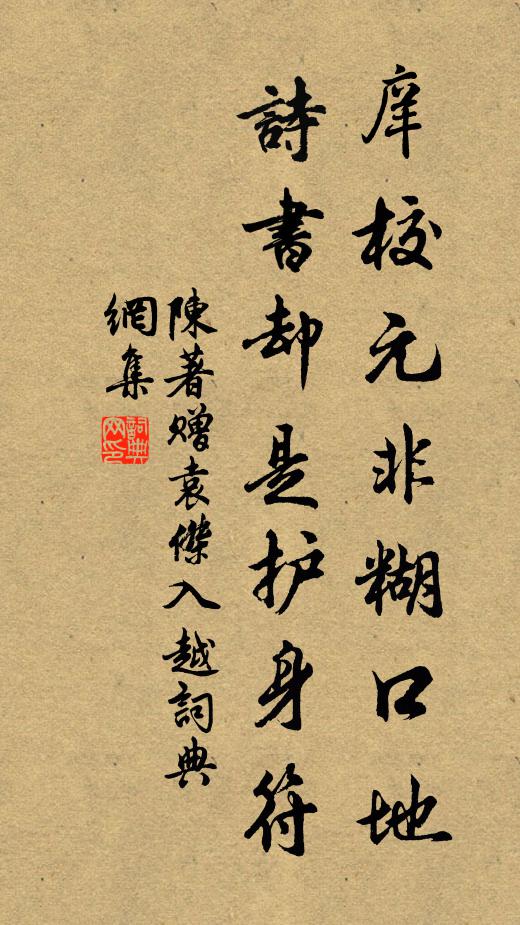 庠校元非糊口地
詩書却是护身符
陳著赠袁傑入越詞典
網集
詞典
网印